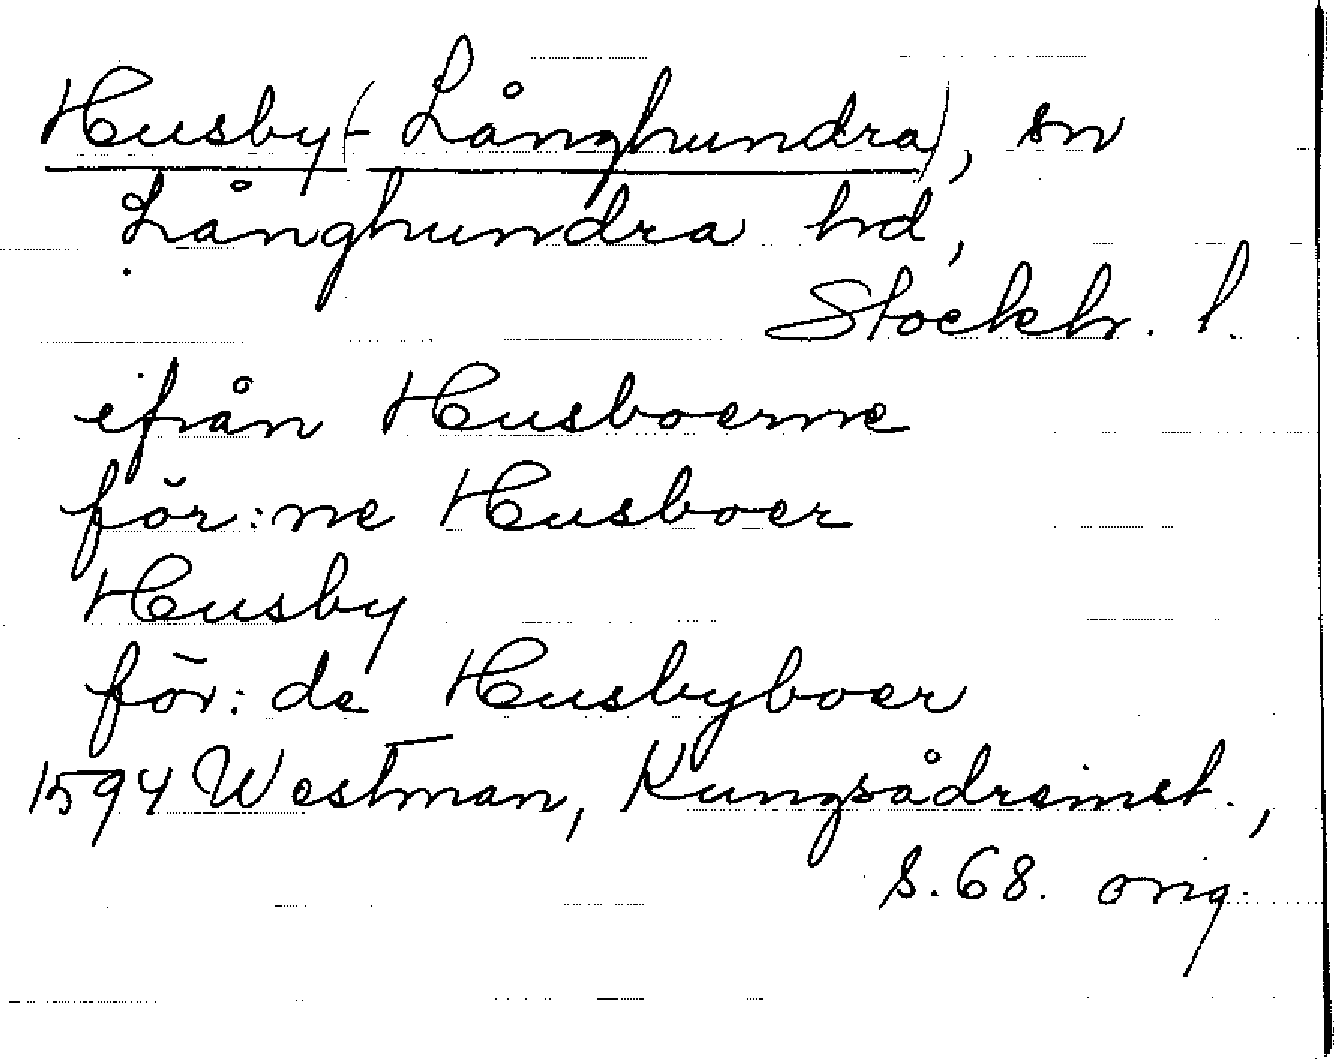 Husby(-Långhundra), sn
Långhundra hd,
Stockh. l.
ifrån Husboerne
för:ne Husboer
Husby
för: de Husbyboer
1594 Westman, Kungsådreinst.,
s. 68. orig.